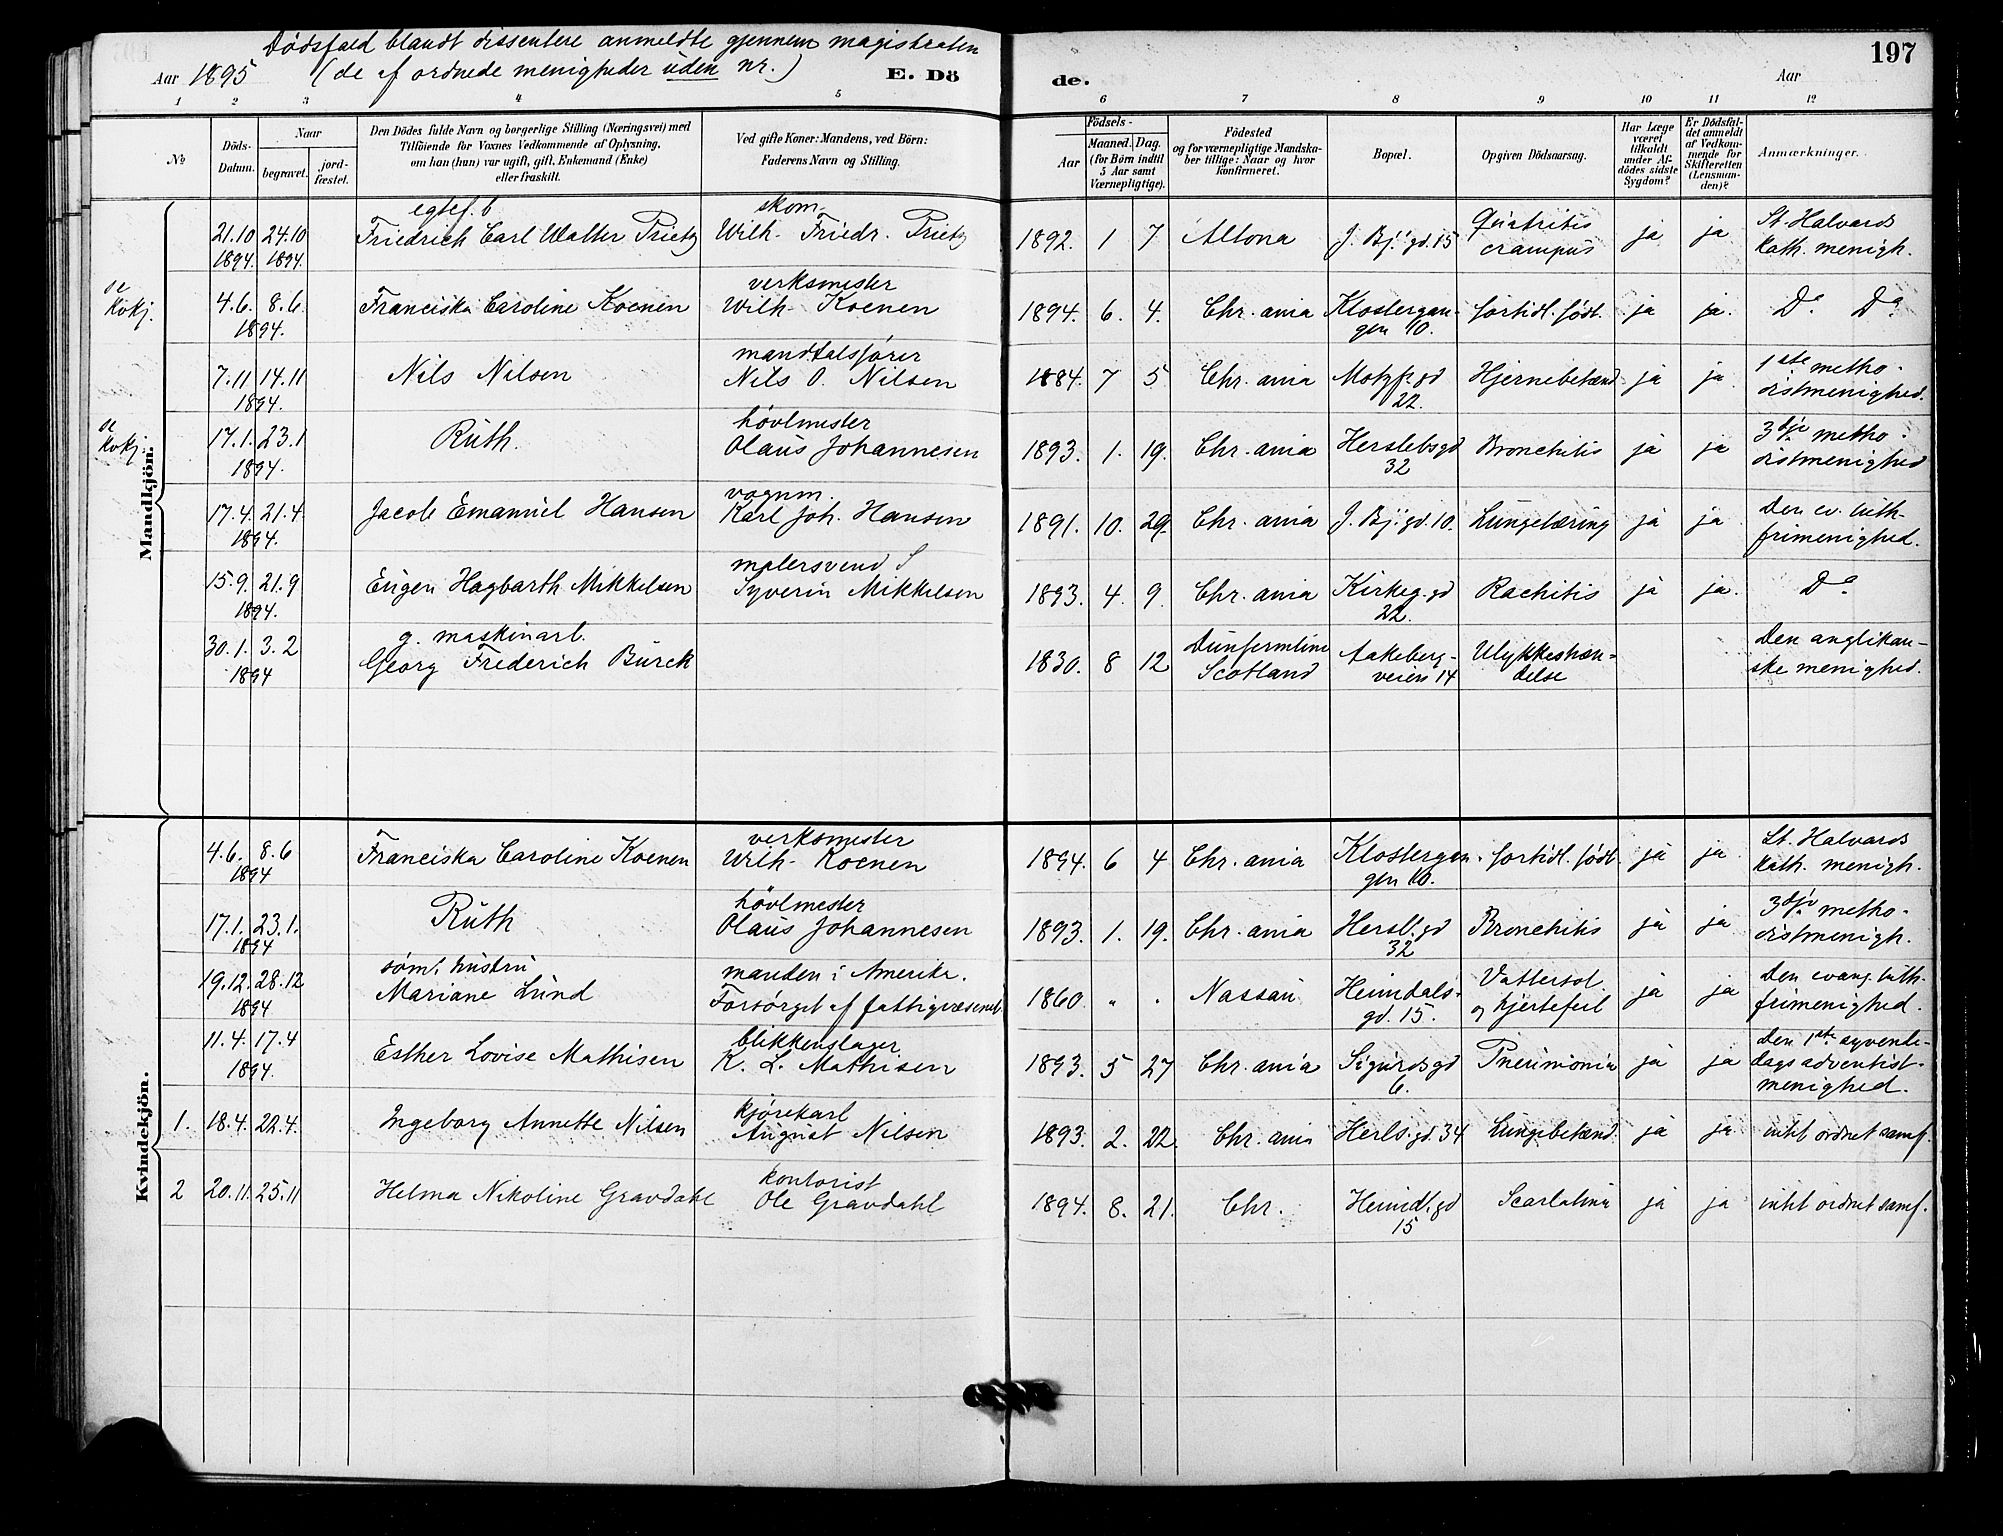 Dødsfald blandt dissentere anmeldte gjennem magistraten
Aar 1895 (de af ordnede menigheder uden nr.)
E. Dö
de.
Aar
197
1 2 3 4 5 6 7 8 9 10 11 12
No
Döds-
Datum.
Naar
begravet.
jord-
fæstet.
Den Dödes fulde Navn og borgerlige Stilling (Næringsvei) med
Tilföiende for Voxnes Vedkommende af Oplysning,
om han (hun) var ugift, gift, Enkemand (Enke)
eller fraskilt.
Ved gifte Koner: Mandens, ved Börn:
Faderens Navn og Stilling.
Födsels-
Aar
Maaned. Dag.
(for Börn indtil
5 Aar samt
Værnepligtige).
Födested
og for værnepligtige Mandska-
ber tillige: Naar og hvor
konfirmeret.
Bopæl.
Opgiven Dödsaarsag.
Har Læge
været
tilkaldt
under Af-
dödes sidste
Sygdom?
Er Dödsfal-
det anmeldt
af Vedkom-
mende for
Skifteretten
(Lensman-
den)?
Anmærkninger.
Mandkjön.
egtef. b skom.
21.10 24.10 Friedrich Carl Walter Prietz Wilh. Friedr. Prietz 1892. 1 7 Altona J. Bj. gd. 15 crampus ja ja St. Halvards
1894. 1894. kath. menigh.
se
Kvkj.
verksmester
4.6. 8.6. Franciska Caroline Koenen Wilh. Koenen 1894. 6. 4. Chr.ania Klostergan- fortidl. født. ja ja. Do Do
1894. gen 10.
mandtalsfører
7.11 14.11 Nils Nilsen Nils O. Nilsen 1884. 7 5 Chr.ania Motzf. gd Hjernebetænd. ja ja. 1ste metho-
1894. 22. distmenighed.
se
Kvkj.
høvlmester
17.1. 23.1 Ruth. Olaus Johannesen 1893. 1. 19. Chr.ania Herslebsgd Bronchitis ja ja 3dje metho-
1894. 32 distmenighed
vognm.
17.4. 21.4. Jacob Emanuel Hansen Karl Joh. Hansen 1891. 10. 29. Chr.ania J. Bj. gd. 10. Lungetæring ja ja Den ev. luth.
1894. frimenighed.
malersvend S
15.9. 21.9 Eugen Hagbarth Mikkelsen Syverin Mikkelsen 1893. 4. 9. Chr.ania Kirkeg. gd Rachitis ja ja. Do
1894. 22.
g. maskinarb.
30.1. 3.2 Georg Frederich Burck 1830. 8 12 Dunfermline Aakeberg- Ulykkeshæn- Den anglikan-
1894 Scotland veien 14 delse ske menighed.
Kvindekjön.
verksmester
4.6. 8.6 Franciska Caroline Koenen Wilh. Koenen 1894. 6 4 Chr.ania Klostergan- fortidl. født. ja ja St. Halvards
1894 gen 10. kath. menigh.
høvlmester
17.1. 23.1. Ruth Olaus Johannesen 1893. 1. 19. Chr.ania Hersl. gd Bronchitis ja ja 3dje metho-
1894 32 distmenigh.
søm. hustru manden i Amerika.
19.12. 28.12 Mariane Lund Forsørget af fattigvæsenet. 1860. " . Nassau Heimdals- Vattersot ja ja Den evang. luth.
1894 gd. 15. og hjertefeil frimenighed.
blikkenslager
11.4. 17.4 Esther Lovise Mathisen K. L. Mathisen 1893. 5 27 Chr.ania Sigurdsgd Pneumonia ja ja Den 1ste syvende-
1894. 6. dags adventist-
menighed.
kjørekarl
1. 18.4. 22.4. Ingeborg Annette Nilsen August Nilsen 1893. 2. 22. Chr.ania Herls. gd. 34 Lungebetænd. ja ja. intet ordnet samf.
kontorist
2 20.11. 25.11 Helma Nikoline Gravdahl Ole Gravdahl 1894. 8. 21. Chr. Heimdl. gd Scarlatina ja ja intet ordnet samf.
15